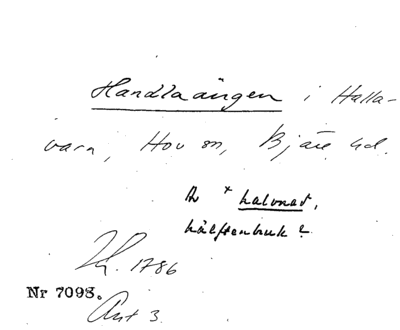 Handlaängen i Halla-
vara, Hov sn, Bjäre hd.
* halvnad,
hälftenbruk?
1786
Nr 7098.
Akt 3